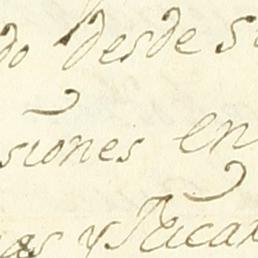 do desde s
siones en
as y Pucar